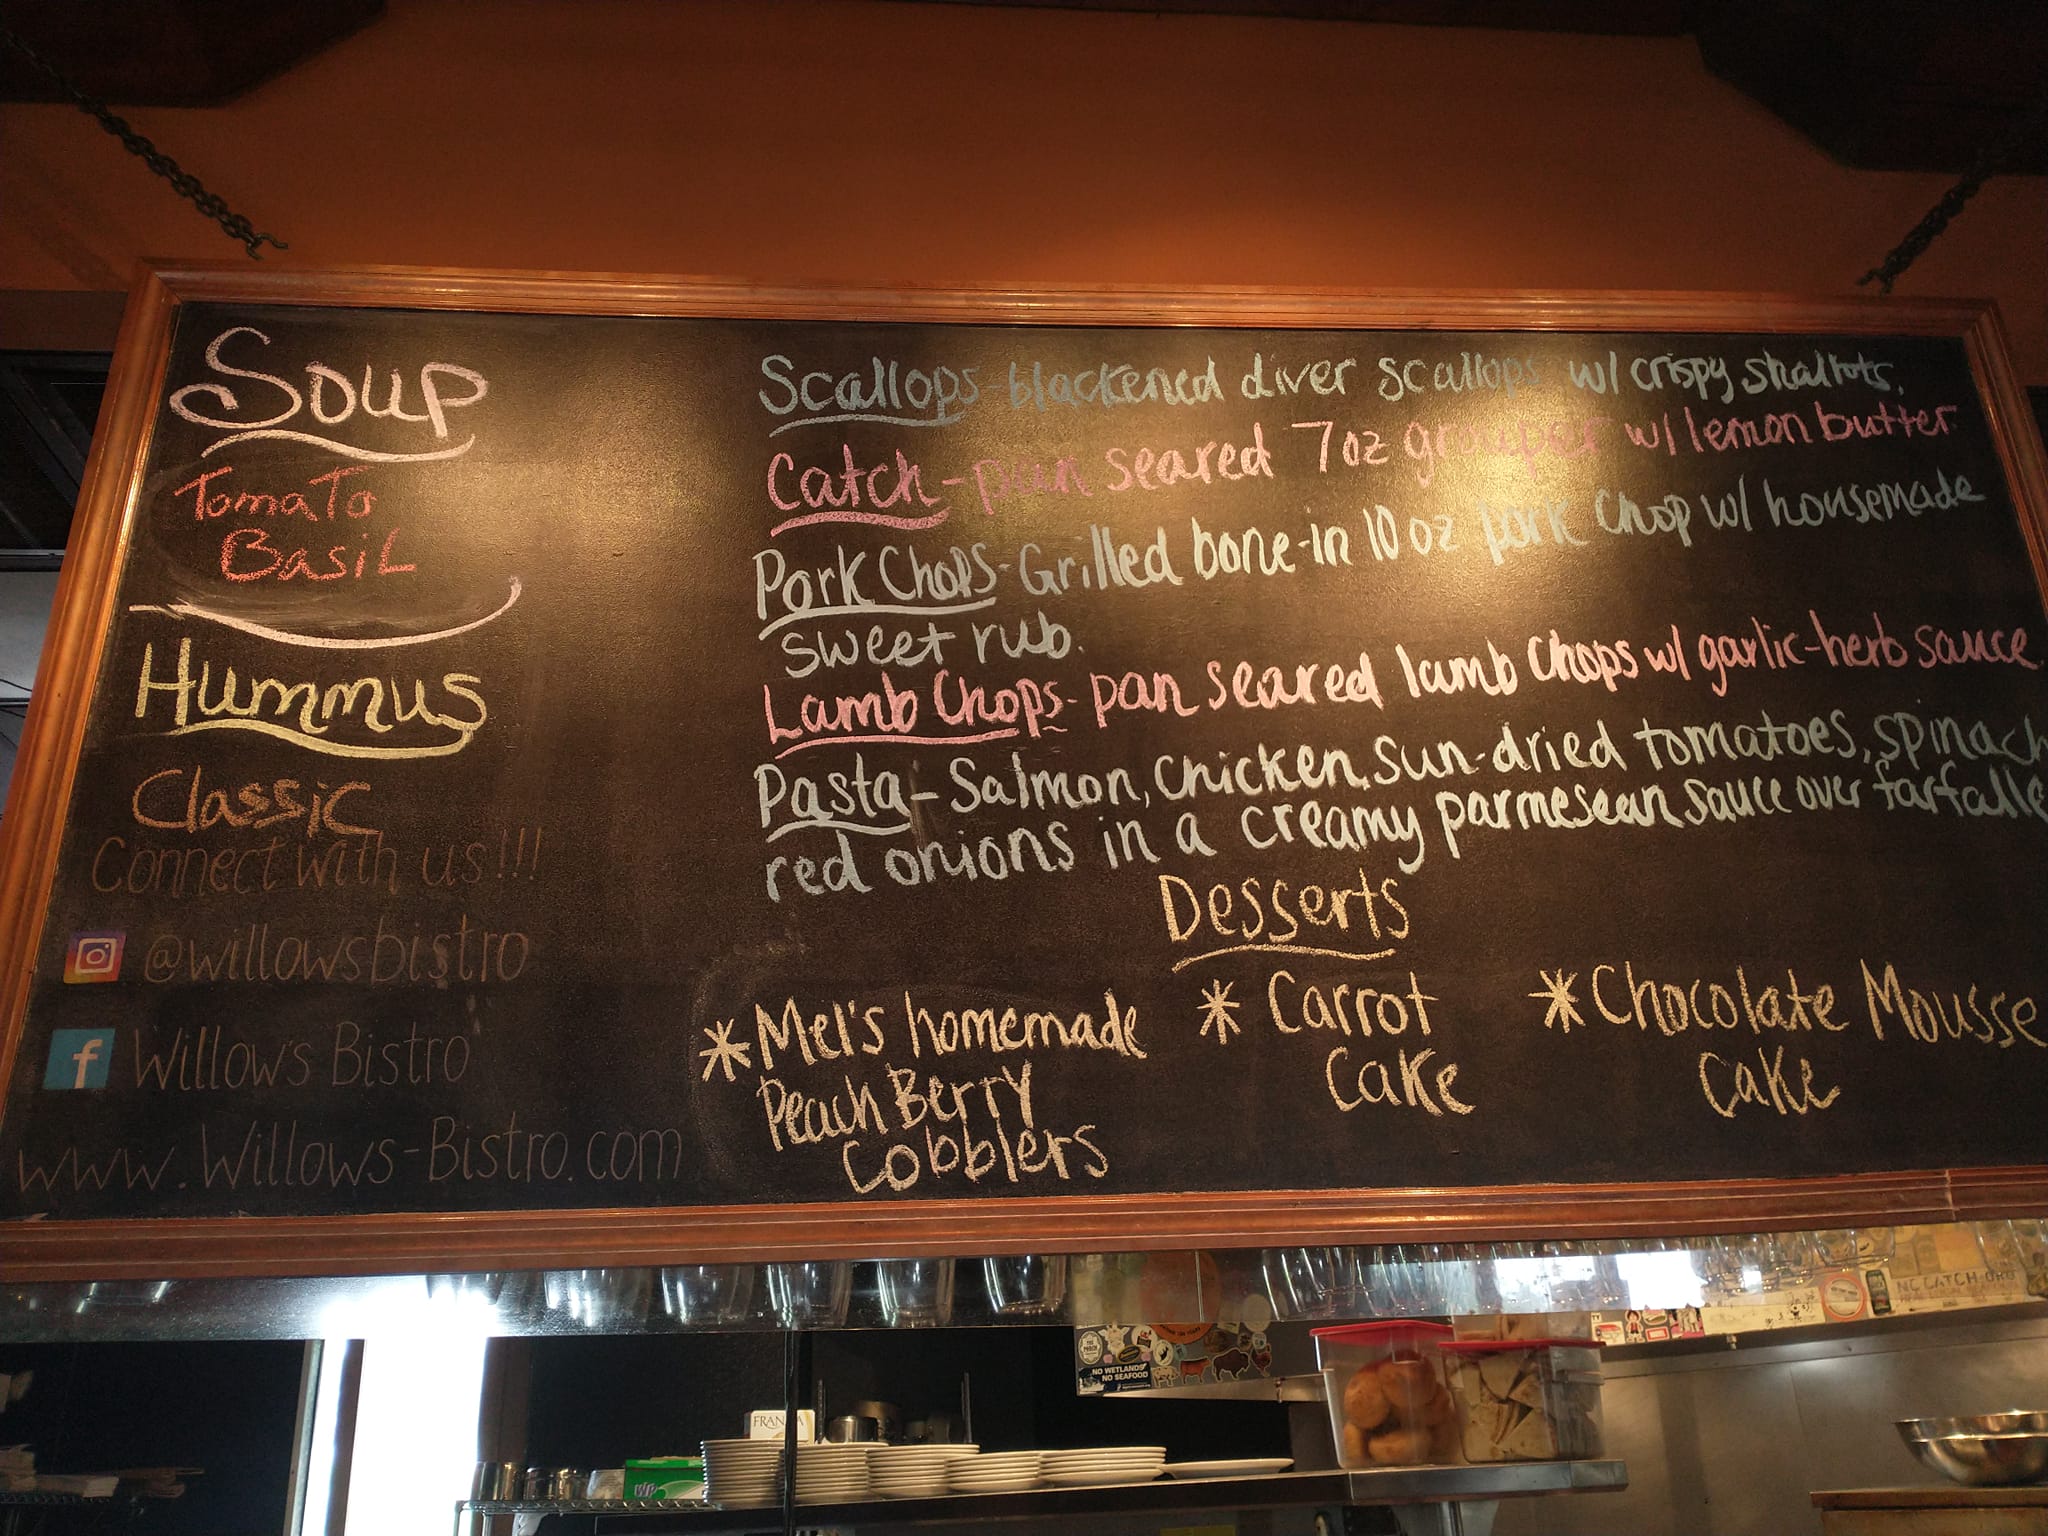 Soup
Tomato
Basil
Hummus
Classic
Connect with us!!!
@willowsbistro
f Willow's Bistro
www.Willows-Bistro.com
Scallops-blackened diver scallops w/ crispy shallots.
Catch-pan seared 7oz grouper w/ lemon butter.
Pork Chops-Grilled bone-in 10oz pork chop w/ housemade
sweet rub.
Lamb Chops-pan seared lamb chops w/ garlic-herb sauce.
Pasta-Salmon, chicken, sun-dried tomatoes, spinach
red onions in a creamy parmesean sauce over farfalle
Desserts
*Mel's homemade
Peach Berry
Cobblers
*Carrot
Cake
*Chocolate Mousse
Cake
NC CATCH.ORG
NO WETLANDS
NO SEAFOOD
WP